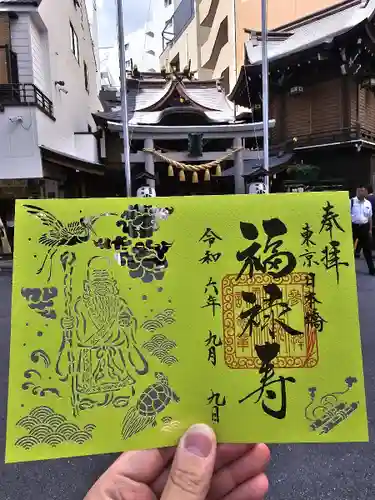 奉拝
東京日本橋
福禄寿
令和六年九月九日